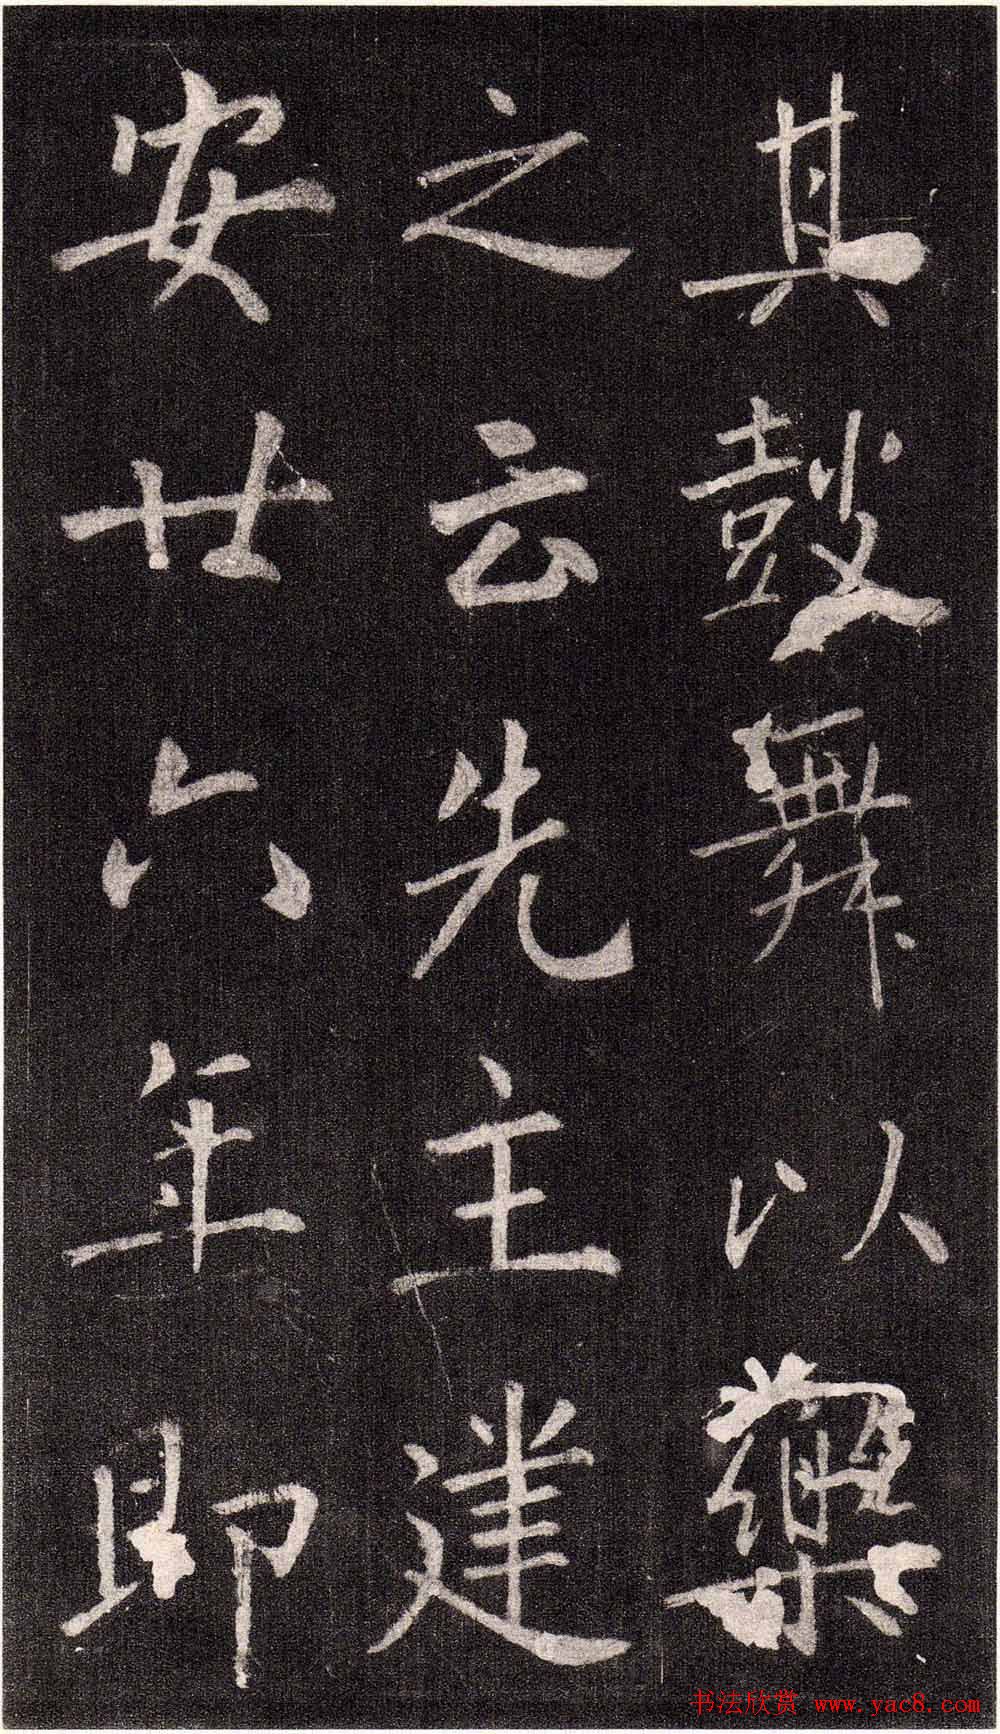 其鼓舞以藥
之云先主建
安廿六年即
书法欣赏 www.yac8.com